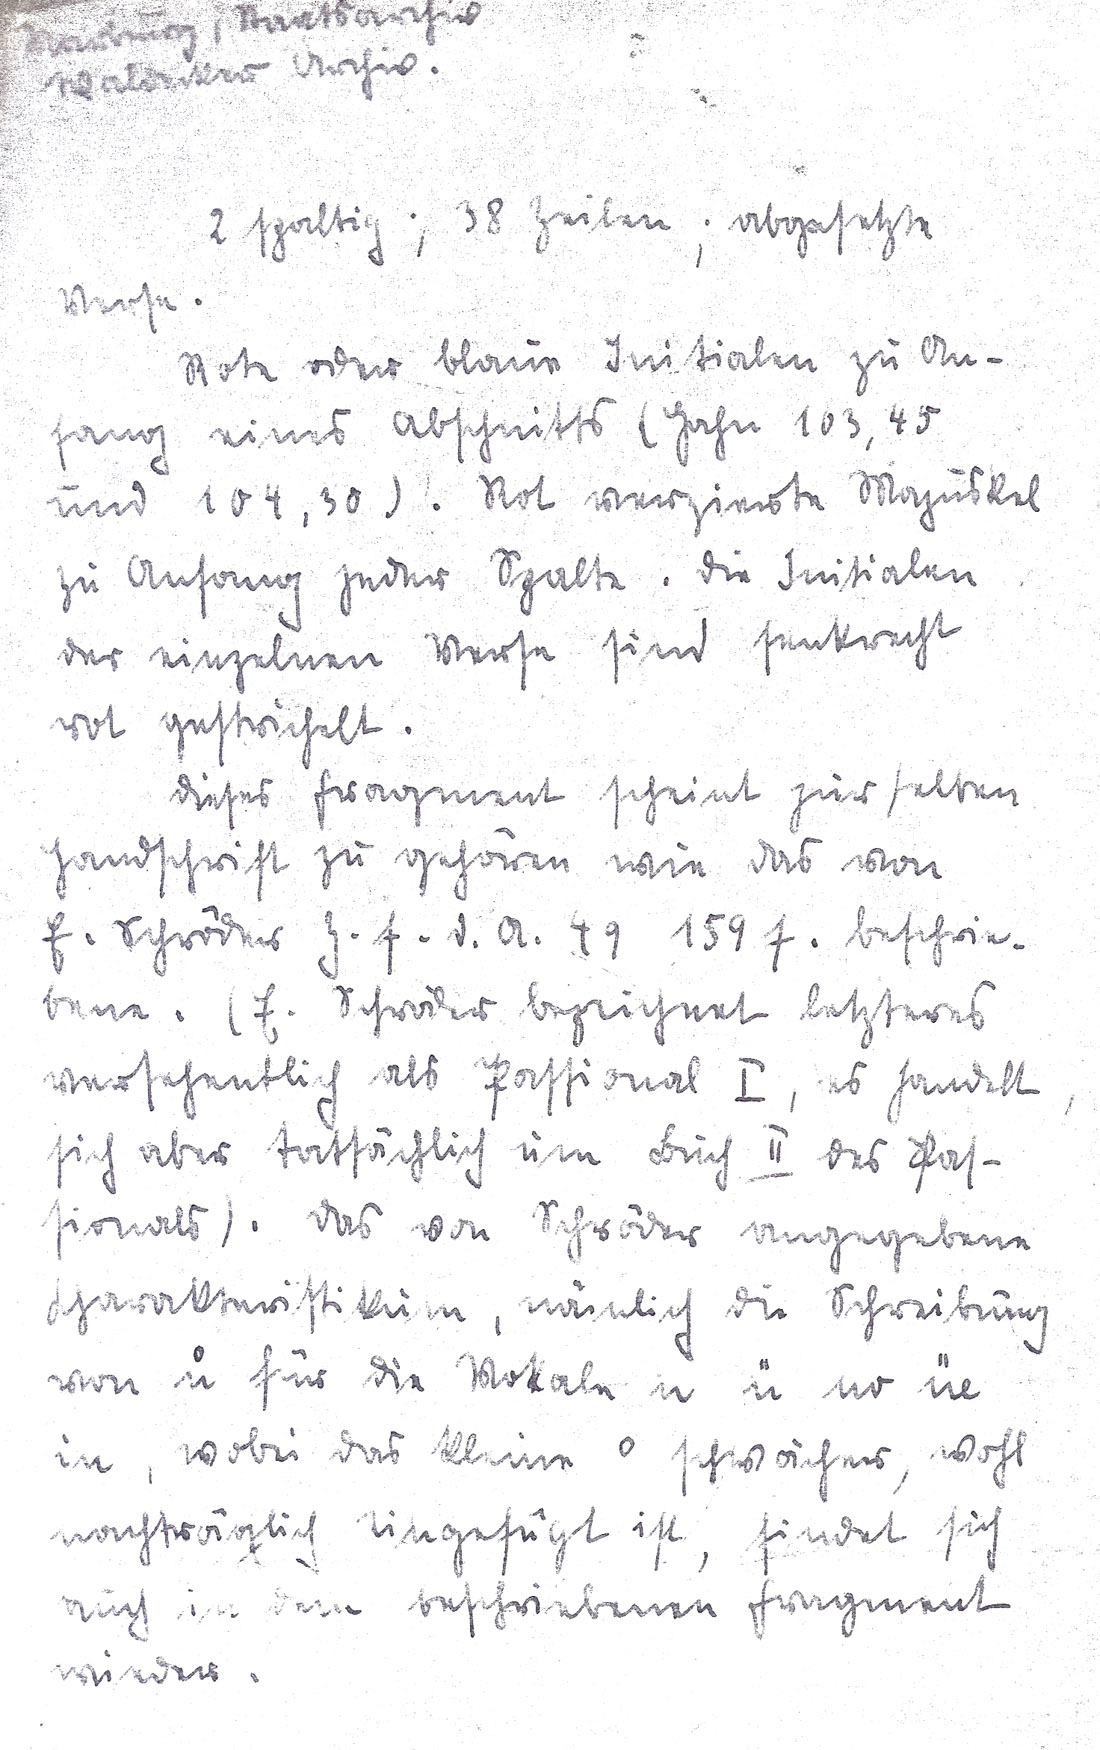 Marburg, Staatsarchiv
Waldecker Archiv.
2 spaltig; 38 Zeilen; abgesetzte
Verse.
Rote oder blaue Initialen zu An-
fang eines Abschnitts (Hahn 103,45
und 104,30). Rot verzierte Majuskel
zu Anfang jeder Spalte. Die Initialen
der einzelnen Verse sind senkrecht
rot gestrichelt.
Dieses Fragment scheint zur selben
Handschrift zu gehören wie das von
E. Schröder Z. f. d. A. 49 159 f. beschrie-
bene. (E. Schröder bezeichnet letzteres
versehentlich als Passional I, es handelt,
sich aber tatsächlich um Buch II des Pas-
sionals). Das von Schröder angegebene
Charakteristikum, nämlich die Schreibung
von ů für die Vokale u ü uo üe
iu, wobei das kleine o schwächer, wohl
nachträglich eingefügt ist, findet sich
auch in dem beschriebenen Fragment
wieder.